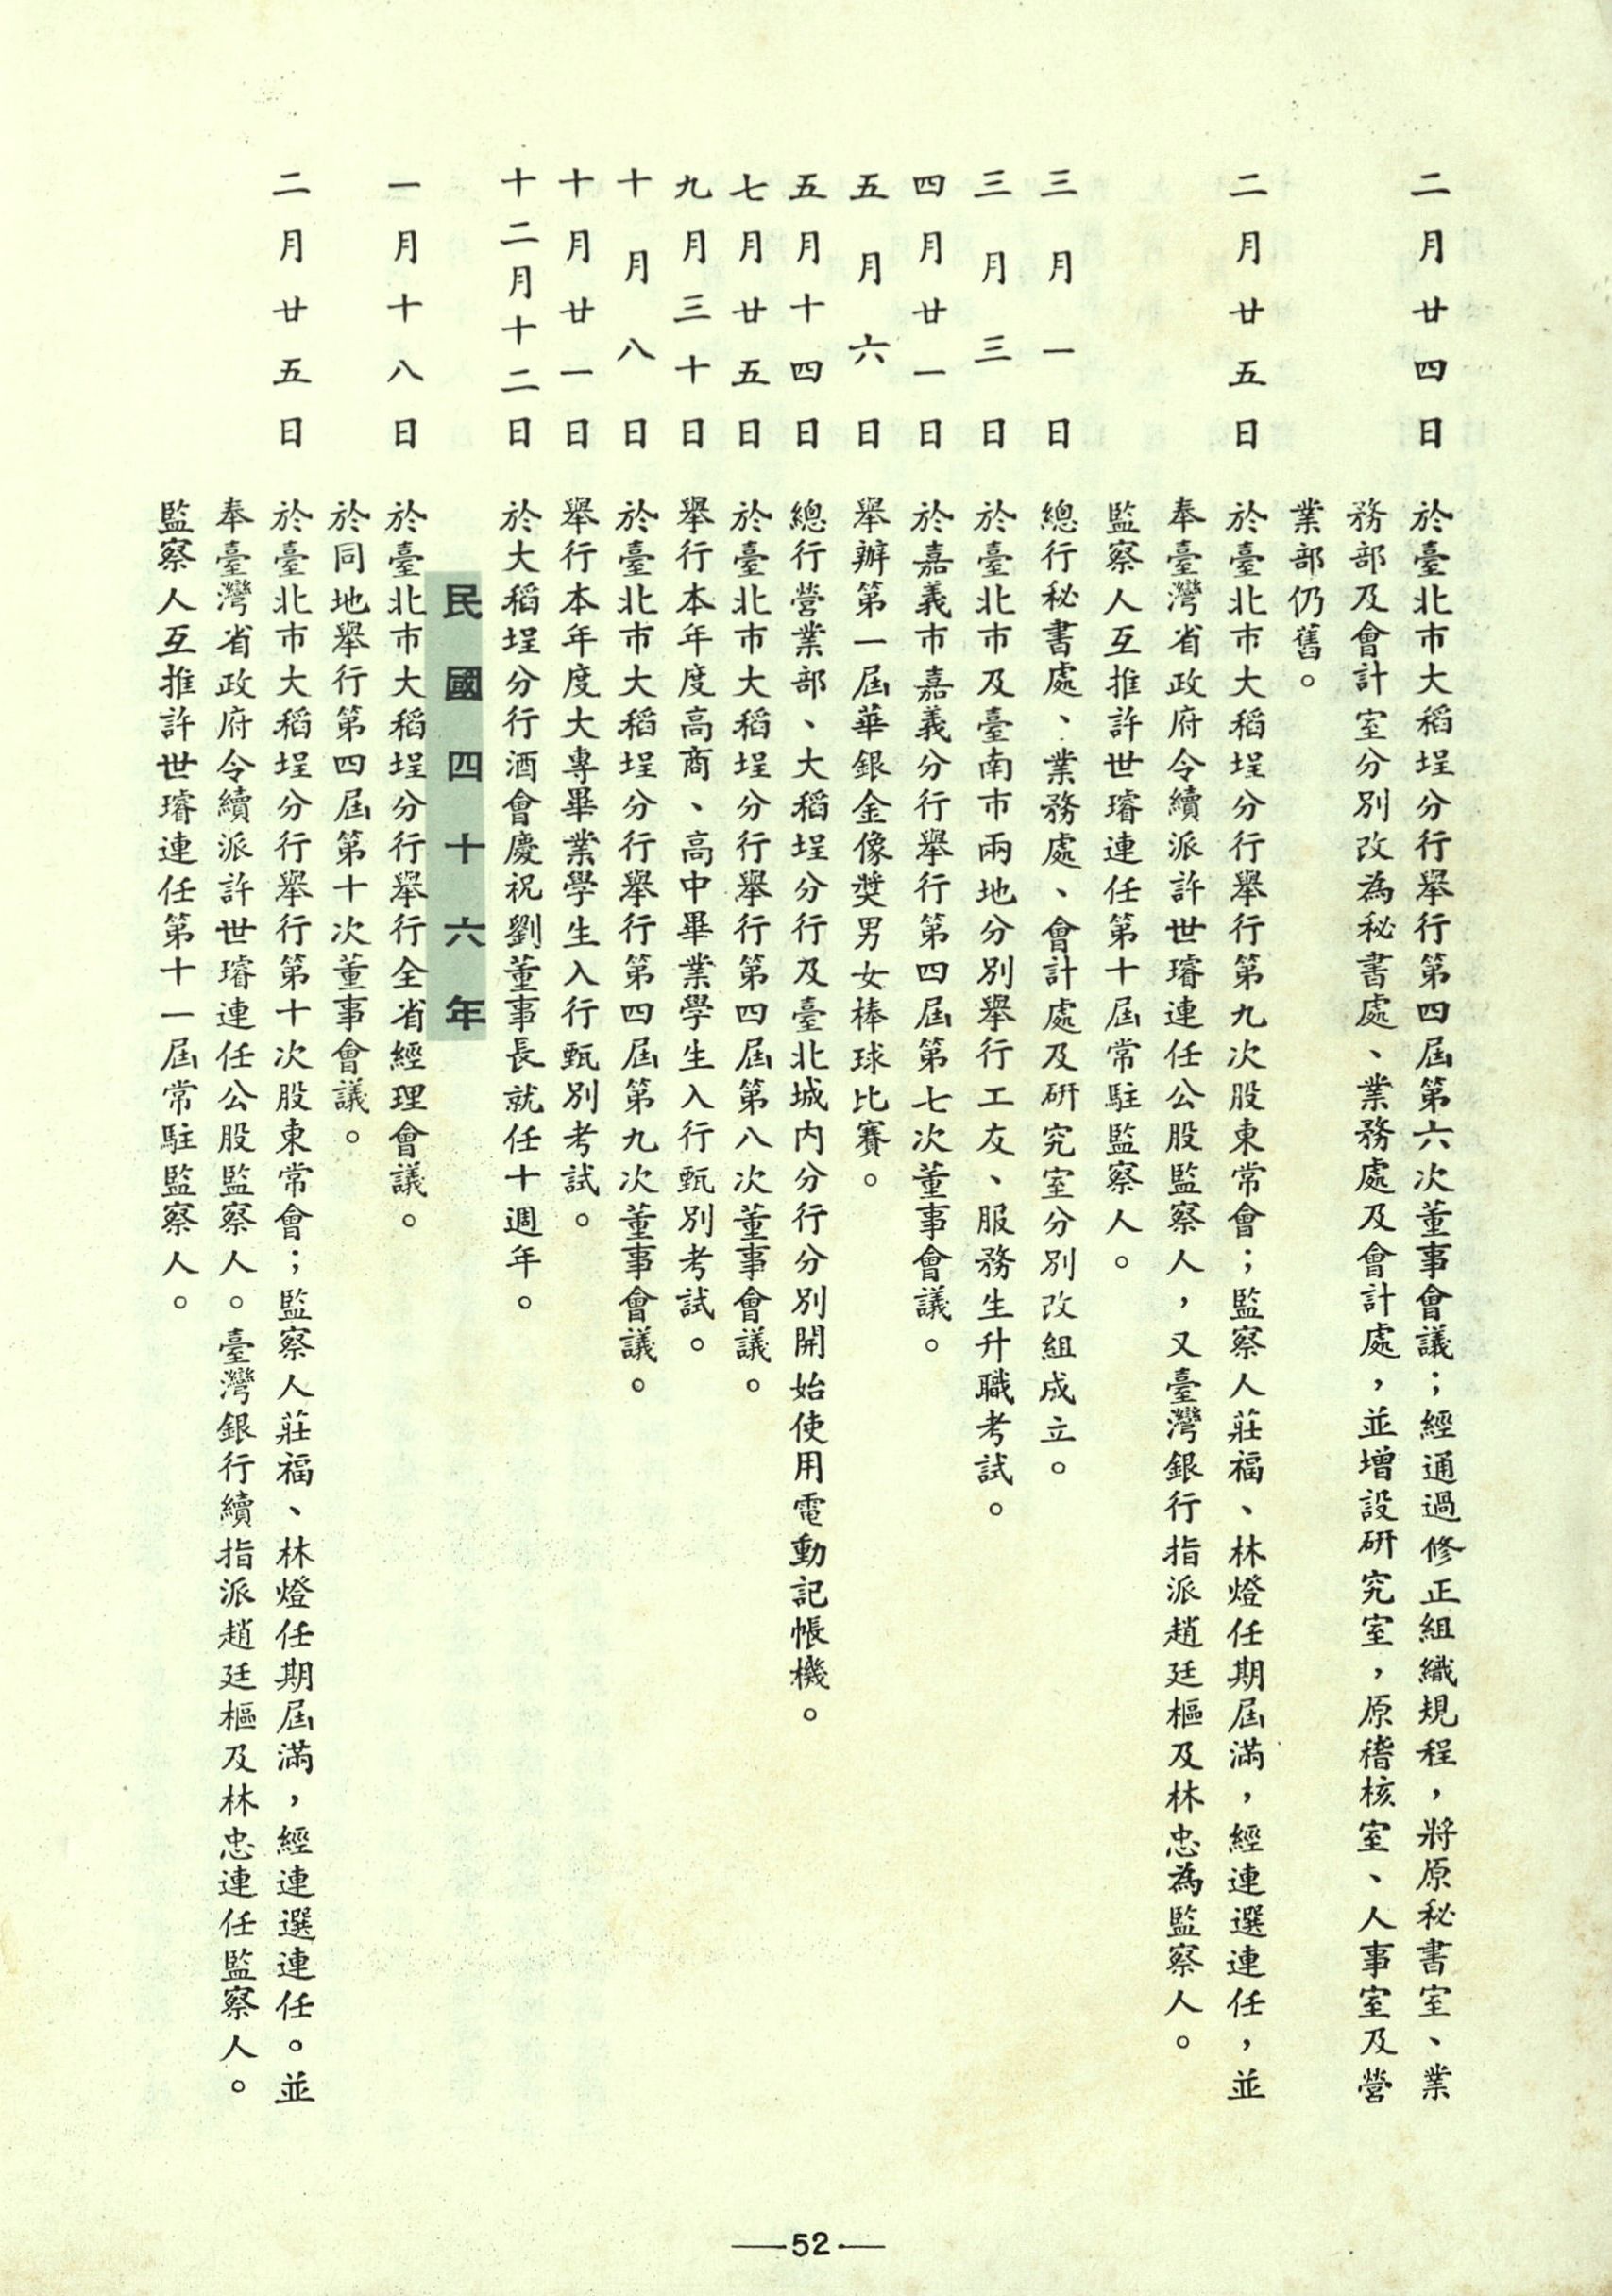 二月廿四日　於臺北市大稻埕分行舉行第四屆第六次董事會議；經通過修正組織規程，將原秘書室、業
務部及會計室分別改為秘書處、業務處及會計處，並增設研究室，原稽核室、人事室及營
業部仍舊。
二月廿五日　於臺北市大稻埕分行舉行第九次股東常會；監察人莊福、林燈任期屆滿，經連選連任，並
奉臺灣省政府令續派許世璿連任公股監察人，又臺灣銀行指派趙廷樞及林忠為監察人。
監察人互推許世璿連任第十屆常駐監察人。
三月一日　總行秘書處、業務處、會計處及研究室分別改組成立。
三月三日　於臺北市及臺南市兩地分別舉行工友、服務生升職考試。
四月廿一日　於嘉義市嘉義分行舉行第四屆第七次董事會議。
五月六日　舉辦第一屆華銀金像獎男女棒球比賽。
五月十四日　總行營業部、大稻埕分行及臺北城內分行分別開始使用電動記帳機。
七月廿五日　於臺北市大稻埕分行舉行第四屆第八次董事會議。
九月三十日　舉行本年度高商、高中畢業學生入行甄別考試。
十月八日　於臺北市大稻埕分行舉行第四屆第九次董事會議。
十月廿一日　舉行本年度大專畢業學生入行甄別考試。
十二月十二日　於大稻埕分行酒會慶祝劉董事長就任十週年。
民國四十六年
一月十八日　於臺北市大稻埕分行舉行全省經理會議。
於同地舉行第四屆第十次董事會議。
二月廿五日　於臺北市大稻埕分行舉行第十次股東常會；監察人莊福、林燈任期屆滿，經連選連任。並
奉臺灣省政府令續派許世璿連任公股監察人。臺灣銀行續指派趙廷樞及林忠連任監察人。
監察人互推許世璿連任第十一屆常駐監察人。
52